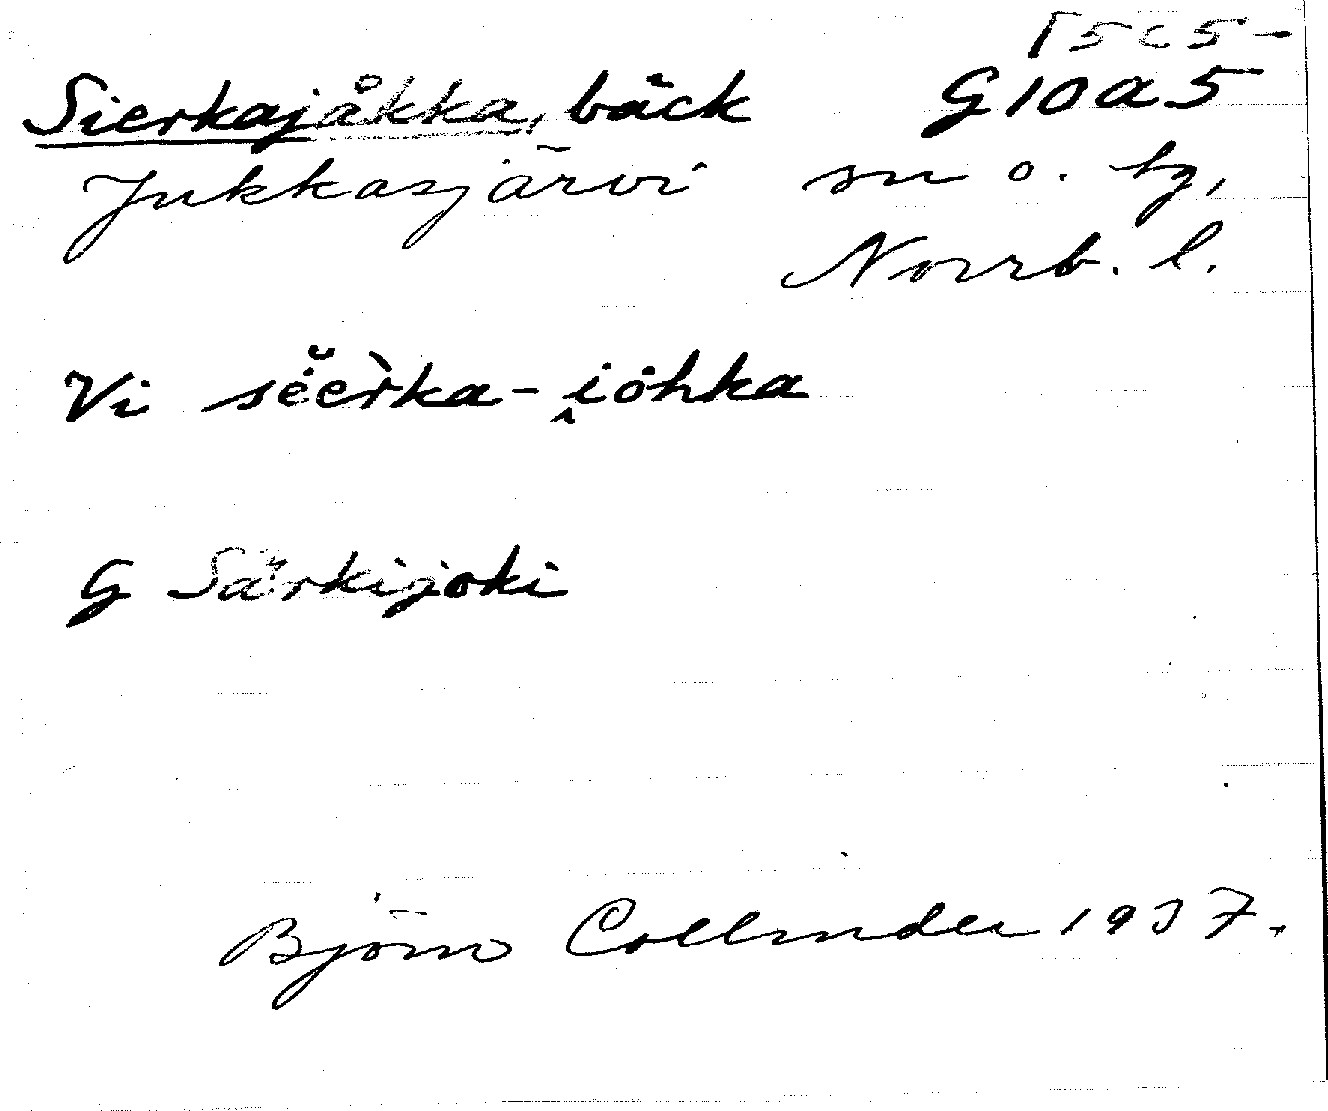 Sierkajåkka, bäck G10a5
Jukkasjärvi sn o. tg,
Norrb. l.
Vi sĕèr̀ka-i̭òhka
G Särkijoki
Björn Collinder 1937.